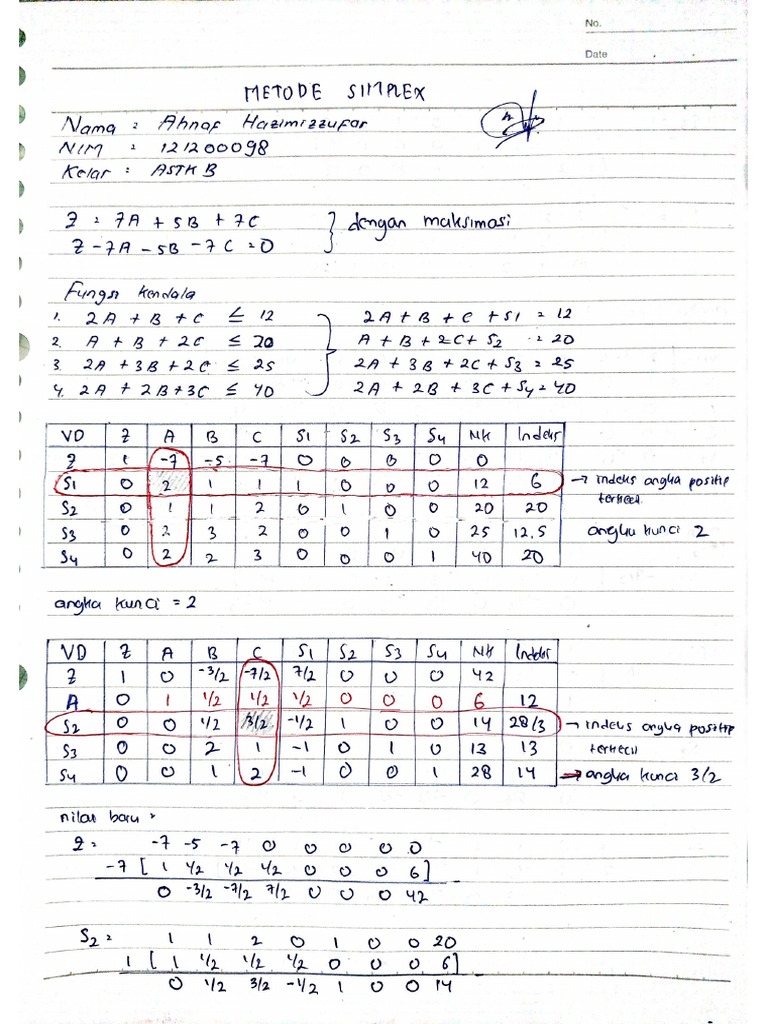 No.
Date
METODE SIMPLEX
Nama : Ahnaf Hazimizzufar
NIM : 121200098
Kelas : ASTK B
Z = 7A + 5B + 7C } dengan maksimasi
Z - 7A - 5B - 7C = 0
Fungsi kendala
1. 2A + B + C ≤ 12 } 2A + B + C + S1 = 12
2. A + B + 2C ≤ 20 A + B + 2C + S2 = 20
3. 2A + 3B + 2C ≤ 25 2A + 3B + 2C + S3 = 25
4. 2A + 2B + 3C ≤ 40 2A + 2B + 3C + S4 = 40
VD Z A B C S1 S2 S3 S4 NK Indeks
Z 1 -7 -5 -7 0 0 0 0 0
S1 0 2 1 1 1 0 0 0 12 6 → indeks angka positip
terkecil
S2 0 1 1 2 0 1 0 0 20 20
S3 0 2 3 2 0 0 1 0 25 12,5 angka kunci 2
S4 0 2 2 3 0 0 0 1 40 20
angka kunci = 2
VD Z A B C S1 S2 S3 S4 NK Indeks
Z 1 0 -3/2 -7/2 7/2 0 0 0 42
A 0 1 1/2 1/2 1/2 0 0 0 6 12
S2 0 0 1/2 3/2 -1/2 1 0 0 14 28/3 → indeks angka positip
S3 0 0 2 1 -1 0 1 0 13 13 terkecil
S4 0 0 1 2 -1 0 0 1 28 14 → angka kunci 3/2
nilai baru =
Z = -7 -5 -7 0 0 0 0 0
-7 [ 1 1/2 1/2 1/2 0 0 0 6 ]
0 -3/2 -7/2 7/2 0 0 0 42
S2 = 1 1 2 0 1 0 0 20
1 [ 1 1/2 1/2 1/2 0 0 0 6 ]
0 1/2 3/2 -1/2 1 0 0 14